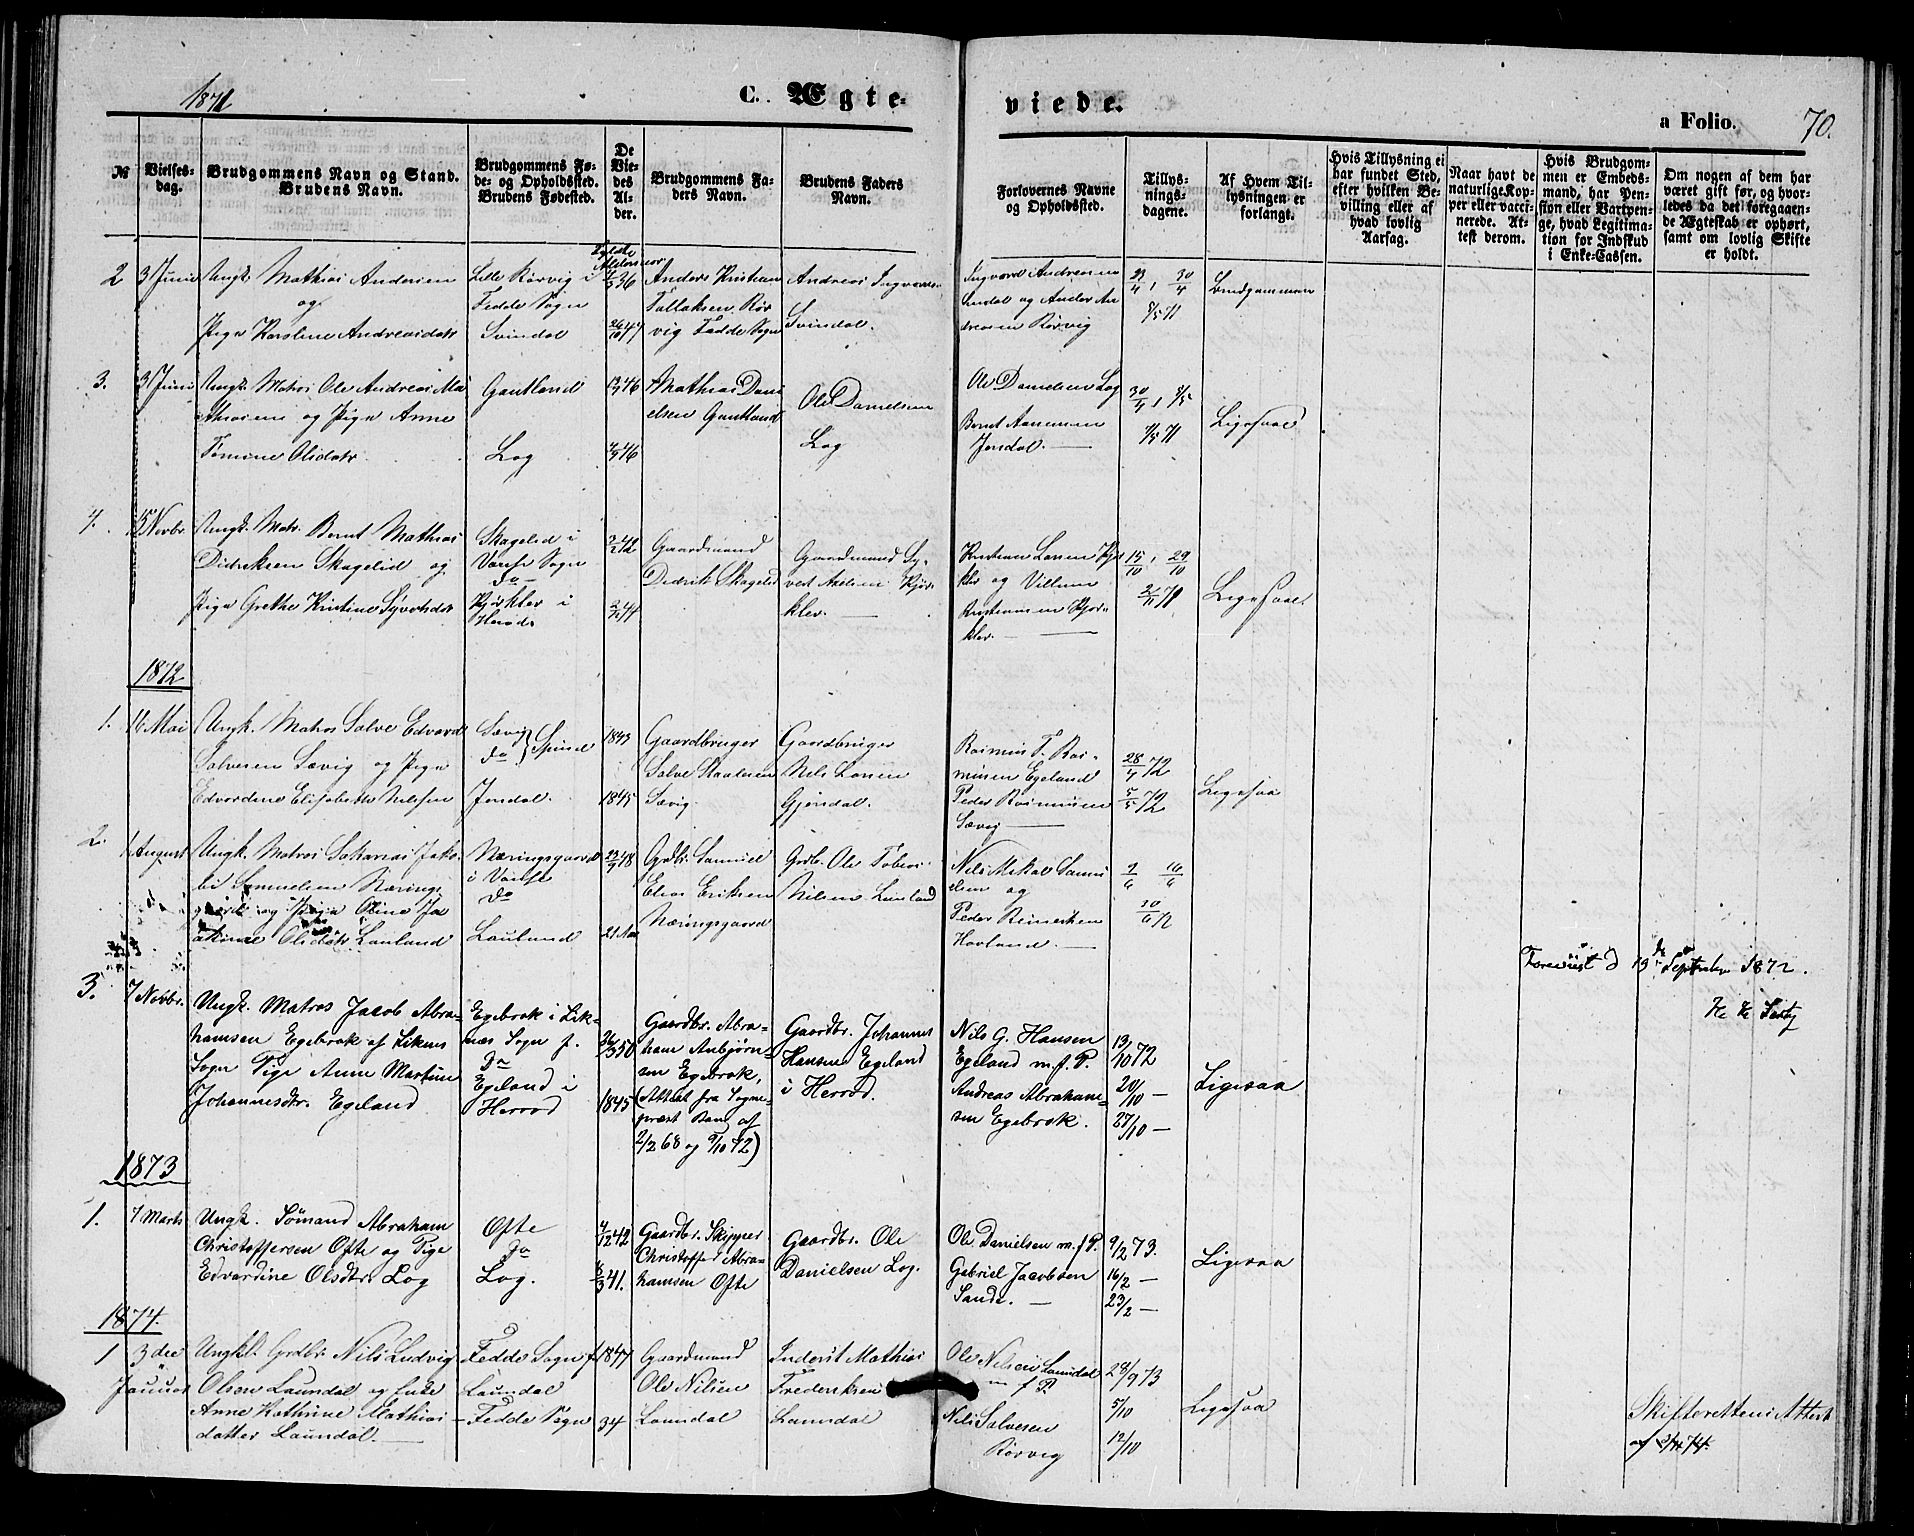 1871
C. Ægte-
viede.
a Folio. 70.
№
Vielses-
dag.
Brudgommens Navn og Stand.
Brudens Navn.
Brudgommens Fø-
de- og Opholdssted.
Brudens Fødested.
De
Vie-
des
Al-
der.
Brudgommens Fa-
ders Navn.
Brudens Faders
Navn.
Forlovernes Navne
og Opholdssted.
Tillys-
nings-
dagene.
Af Hvem Til-
lysningen er
forlangt.
Hvis Tillysning ei
har fundet Sted,
efter hvilken Be-
villing eller af
hvad lovlig
Aarsag.
Naar havt de
naturlige Kop-
per eller vacci-
nerede. At-
test derom.
Hvis Brudgom-
men er Embeds-
mand, har Pen-
sion eller Vartpen-
ge, hvad Legitima-
tion for Indskud
i Enke-Cassen.
Om nogen af dem har
været gift før, og hvor-
ledes da det foregaaen-
de Ægteskab er ophørt,
samt om lovlig Skifte
er holdt.
2
3 Juni
Ungk. Mathias Andersen
og
Pige Karoline Andreasdatr
Lille Rørvig i
Fedde Sogn
Svindal
36
26/10 47
Anders Kristian
Tallaksen Rør
vig Fedde Sogn
Andreas Ingvares.
Svindal.
Ingvard Andreasen
Svindal og Anders An
dreasen Rørvig
23/4, 30/4
8/5 71
Brudgommen
3.
3 Juni
Ungk. Matros Ole Andreas Ma
thiasen og Pige Anne
Tomine Olsdatr
Gautland
Log
46
46
Mathias Dani
elsen Gautland
Ole Danielsen
Log
Ole Danielsen Log
Bernt Aanensen
Jendal. —
30/4, 8/5
71
Ligesaa
4.
15 Novbr.
Ungk. Matr. Bernt Mathias
Didriksen Skagelid og
Pige Grethe Kristine Syvertsdr
Skagelid i
Vanse Sogn
do
Kjørklev i
Herads
42
44
Gaardmand
Didrik Skagelid
Gaardmand Sy-
vert Kjør
klev. —
Kristian Larsen Kjør
klev og Villum
Kristiansen Kjør-
klev. —
15/10, 29/10
2/11 71
Ligesaa
1872
1.
16 Mai
Ungk. Matros Salve Edvard
Salvesen Sævig og Pige
Edvardine Elisabeth Nilsen
Sævig
do } Spind
Jendal.
1843
1845
Gaardbruger
Salve Staalesen
Sævig.
Gaardbruger
Nils Larsen
Gjendal.
Rasmus T. Ras-
musen Egeland
Peder Rasmusen
Sævig —
28/4 72
5/5 72
Ligesaa
2.
1 August
Ungk. Matros Sakarias Jako-
bi Samuelsen Nærings
gaard og Pige Oline Jo
akime Olsdatr Lauland
Næringsgaard
i Vanse
do
Lauland
23/9 48
21 Aar
Grdbr. Samuel
Elias Eriksen
Næringsgaard
Grdbr. Ole Tobias
Nilsen Lauland
Nils Mikal Samu
elsen og
Peder Reinertsen
Havland. —
9/6 16/6
30/6 72
Foreviist d 19de September 1872.
3.
7 Novbr.
Ungk. Matros Jacob Abra-
hamsen Egebrok af Liknes
Sogn Pige Anne Martine
Johannesdtr. Egeland
Egebrok i Lik-
næs Sogn f.
do
Egeland i
Herrad
26/3 50
1845
Gaardbr. Abra-
ham Anbjørn-
sen Egebrok,
(Attest fra Sogne-
præst Bang af
2/2 68 og 9/10 72)
Gaardbr. Johannes
Hansen Egeland
i Herrad.
Nils G. Hansen
Egeland m.f.P.
Andreas Abraham-
sen Egebrok.
13/10 72
20/10 —
27/10 —
Ligesaa
1873
1.
7 Marts
Ungk. Sømand Abraham
Christoffersen Ofte og Pige
Edvardine Olsdtr. Log
Ofte
do
Log.
4/12 42
6/3 41.
Gaardbr. Skipper
Christoffer Abra-
hamsen Ofte
Gaardbr. Ole
Danielsen Log.
Ole Danielsen m.f.P.
Gabriel Jacobsen
Sande. —
9/2 73.
16/2 —
23/2 —
Ligesaa
1874.
1
3die
Januar
Ungkl. Grdbr. Nils Ludvig
Olsen Laundal og Enke
Anne Kathrine Mathias
datter Laundal. —
Fedde Sogn f.
Laundal
Fedde Sogn
1847
34
Gaardmand
Ole Nilsen
Laundal
Inderst Mathias
Frederiksen
Laundal
Ole Nilsen Laundal
m f P.
Nils Salvesen
Rørvig
28/9 73
5/10
12/10
Ligesaa
Skifterettens Attest
af 2/1 74.